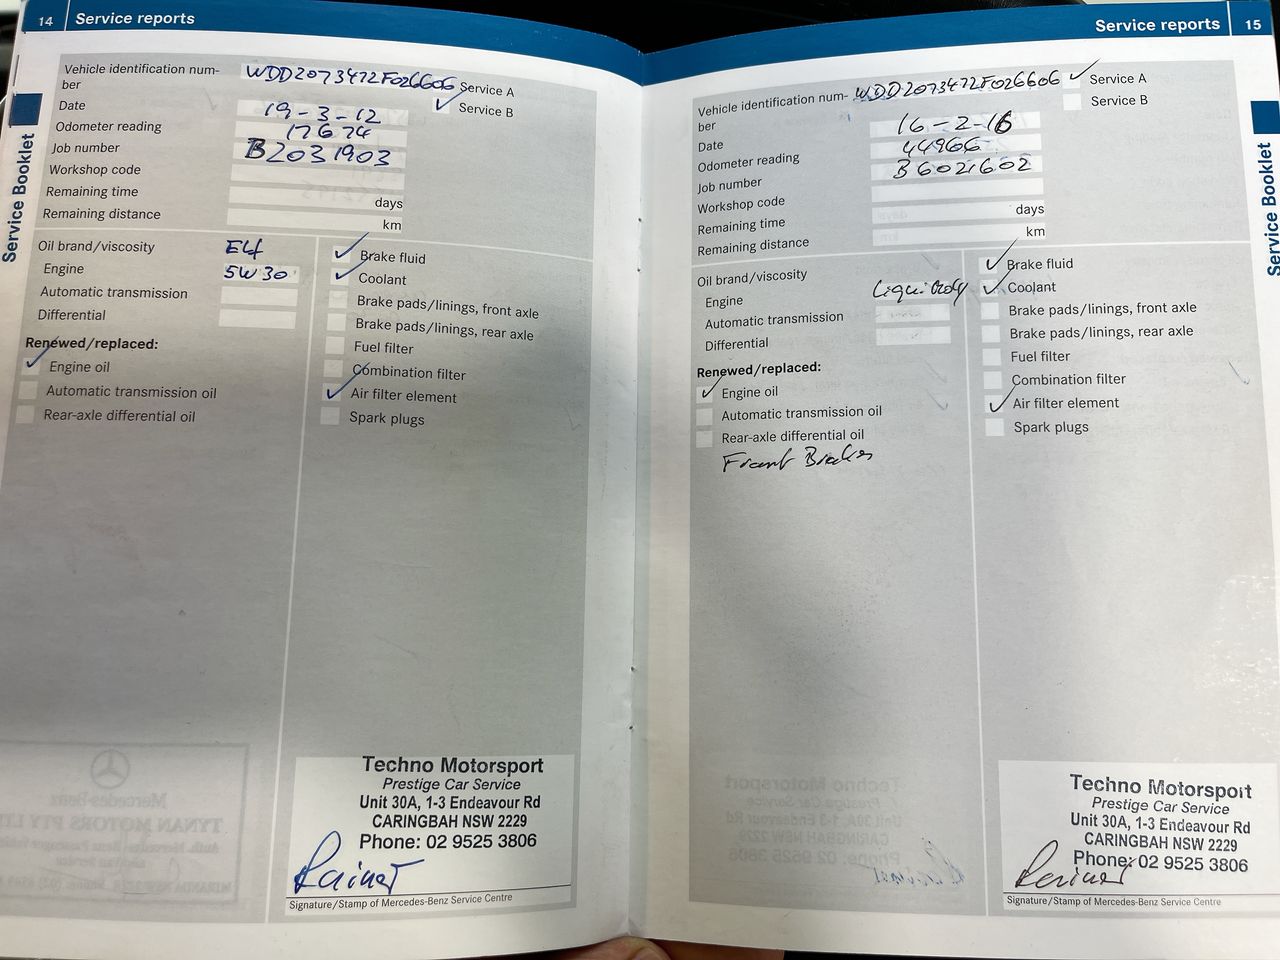 14 Service reports
Service Booklet
Vehicle identification num-
ber WDD2073472F026606
Service A
Service B
Date 19-3-12
Odometer reading 17674
Job number B2031903
Workshop code
Remaining time days
Remaining distance km
Oil brand/viscosity Elf
Engine 5W30
Automatic transmission
Differential
Renewed/replaced:
Engine oil
Automatic transmission oil
Rear-axle differential oil
Brake fluid
Coolant
Brake pads/linings, front axle
Brake pads/linings, rear axle
Fuel filter
Combination filter
Air filter element
Spark plugs
Techno Motorsport
Prestige Car Service
Unit 30A, 1-3 Endeavour Rd
CARINGBAH NSW 2229
Phone: 02 9525 3806
Rainer
Signature/Stamp of Mercedes-Benz Service Centre
Service reports 15
Service Booklet
Vehicle identification num-
ber WDD2073472F026606
Service A
Service B
Date 16-2-16
Odometer reading 44966
Job number B6021602
Workshop code
Remaining time days
Remaining distance km
Oil brand/viscosity
Engine Liqui Moly
Automatic transmission
Differential
Renewed/replaced:
Engine oil
Automatic transmission oil
Rear-axle differential oil
Front Brakes
Brake fluid
Coolant
Brake pads/linings, front axle
Brake pads/linings, rear axle
Fuel filter
Combination filter
Air filter element
Spark plugs
Techno Motorsport
Prestige Car Service
Unit 30A, 1-3 Endeavour Rd
CARINGBAH NSW 2229
Phone: 02 9525 3806
Rainer
Signature/Stamp of Mercedes-Benz Service Centre